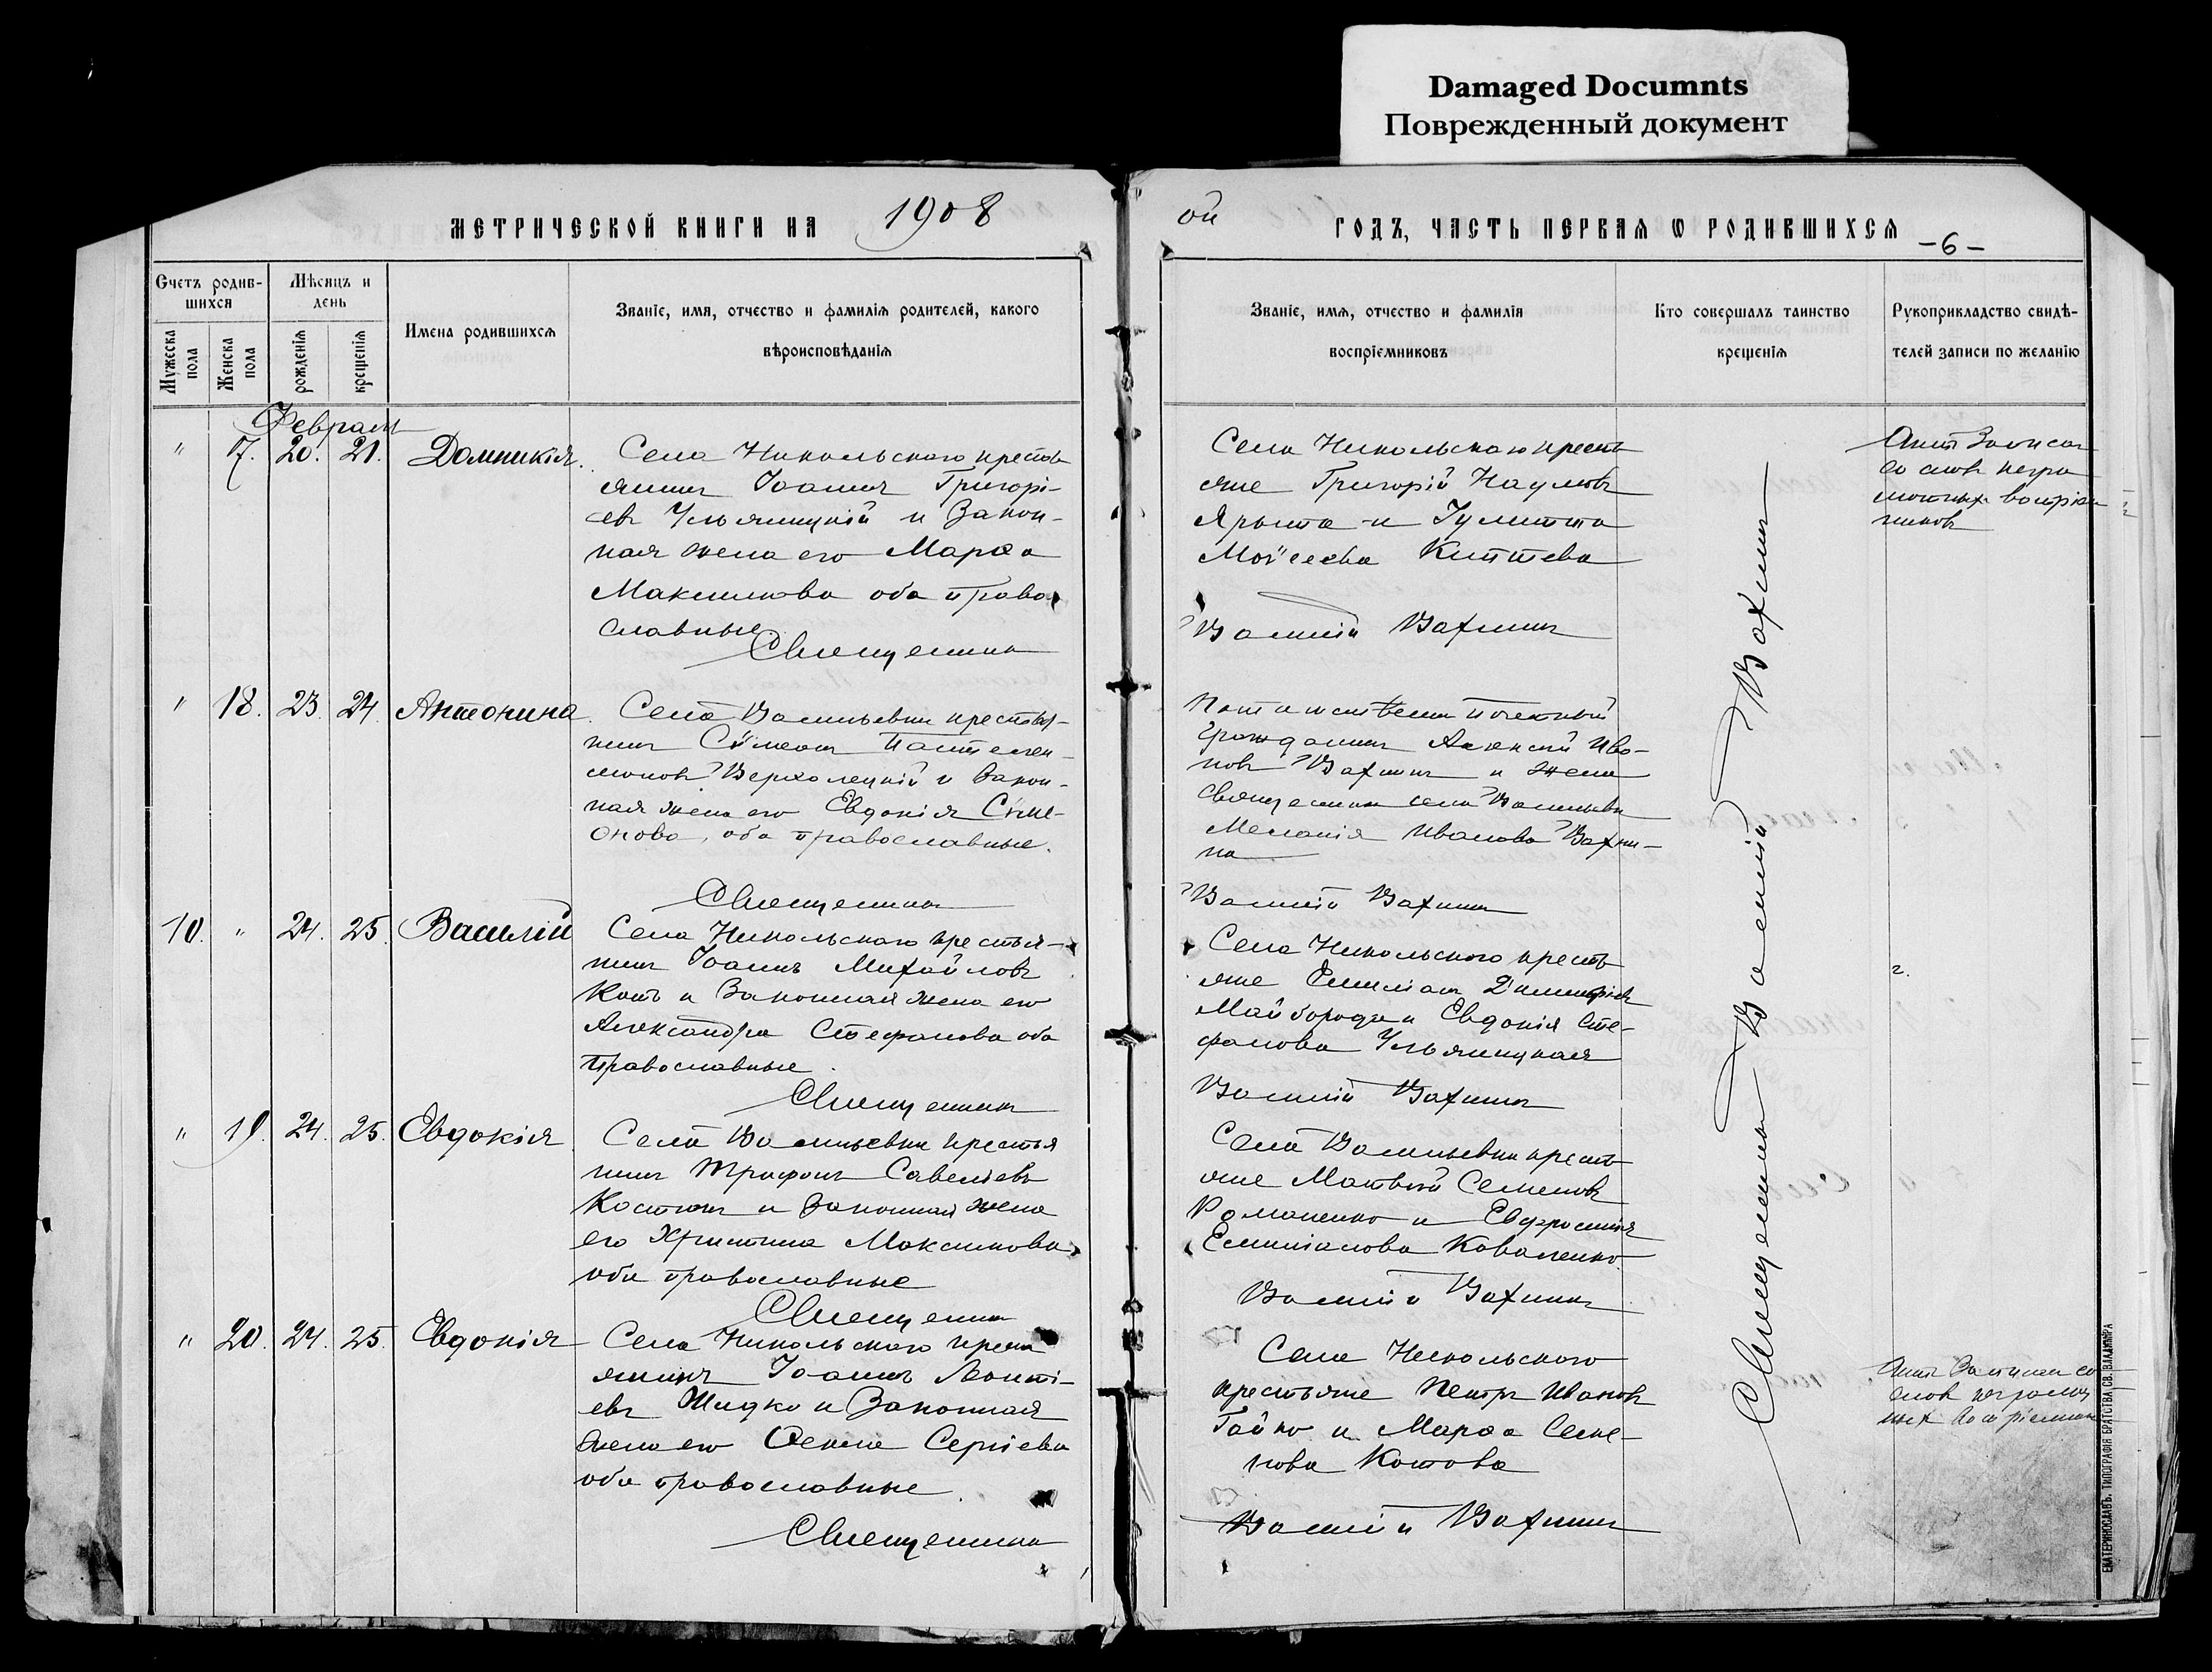 Damaged Documnts
Поврежденный документ
МЕТРИЧЕСКОЙ КНИГИ НА 1908
ой ГОДЪ, ЧАСТЬ ПЕРВАЯ Ѡ РОДИВШИХСЯ -6-
Счетъ родив-
шихся
Мужеска пола
Женска пола
Мѣсяцъ и
день
рожденія
крещенія
Имена родившихся
Званіе, имя, отчество и фамилія родителей, какого
вѣроисповѣданія
Званіе, имя, отчество и фамилія
воспріемниковъ
Кто совершалъ таинство
крещенія
Рукоприкладство свидѣ-
телей записи по желанію
Февраль
" 17. 20. 21. Домникія.
Села Никольскаго кресть
янинъ Іоаннъ Григорі-
евъ Ульяницкій и Закон-
ная жена его Марѳа
Максимова оба право
славные
Священникъ
Села Никольскаго кресть
яне Григорій Наумовъ
Ярыта и Іулитта
Моѵсеева
Василій Вахнинъ
Актъ Записан
со словъ негра
мотныхъ воспріем
никовъ
" 18. 23. 24. Антонина.
Села Васильевки крестья-
нинъ Сѵмеонъ Пантелей-
моновъ Верхолецкій и Закон-
ная жена его Евдокія Сѵме-
онова, оба православные.
Священникъ
Потомственный Почетный
Гражданинъ Алексій Ива-
новъ Вахнинъ и жена
Священника села Васильевки
Меланія Иванова Вахни-
на
Василій Вахнинъ
10. " 24. 25. Василій
Села Никольскаго крестья-
нинъ Іоаннъ Михайловъ
Котъ и Законная жена его
Александра Стефанова оба
Православные.
Священникъ
Села Никольскаго кресть
яне Емиліанъ Димитріевъ
Майборода и Евдокія Сте-
фанова Ульяницкая
Василій Вахнинъ
" 19. 24. 25. Евдокія
Села Васильевки крестья
нинъ Трифонъ Савеліевъ
Костюкъ и Законная жена
его Христина Максимова
оба православные
Священникъ
Села Васильевки кресть
яне Матвій Семеновъ
Романенко и Евфросинія
Емиліанова Коваленко
Василій Вахнинъ
" 20. 24. 25. Евдокія
Села Никольскаго кресть
янинъ Іоаннъ Леонті-
евъ Жидко и Законная
жена его Ѳекла Сергіева
оба православные.
Священникъ
Села Никольскаго
крестьяне Петръ Ивановъ
Гайко и Марѳа Семе-
нова Котова
Василій Вахнинъ
Актъ Записан со
словъ неграмот
ныхъ воспріемник
Священникъ Василій Вахнинъ
ЕКАТЕРИНОСЛАВЪ. ТИПОГРАФІЯ БРАТСТВА СВ. ВЛАДИМІРА